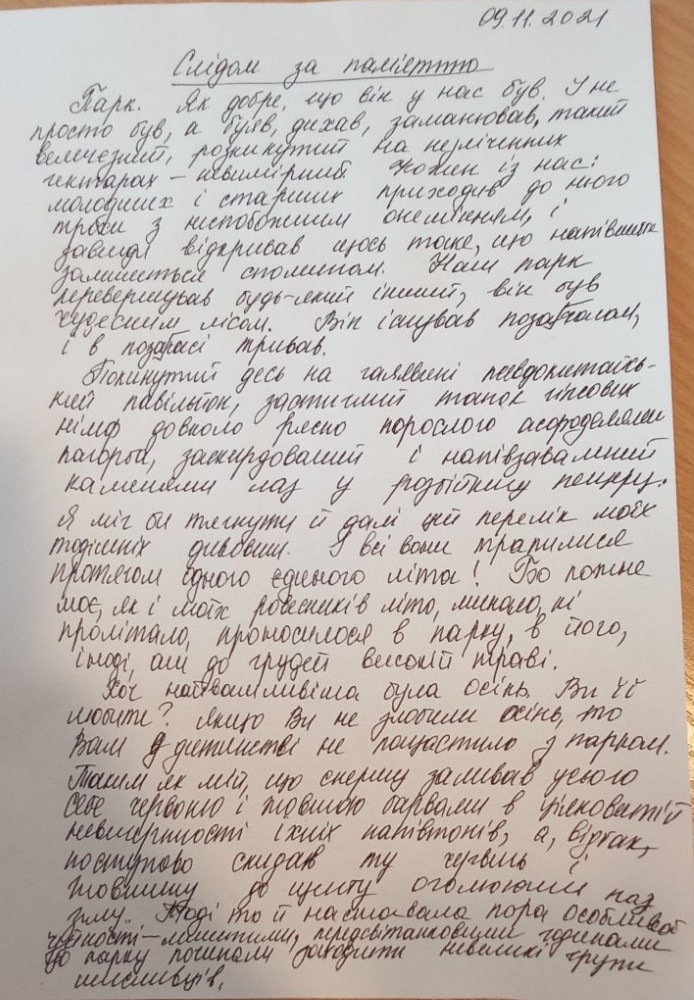 09.11.2021
Слідом за пам'яттю
Парк. Як добре, що він у нас був. І не
просто був, а буяв, дихав, заманював, такий
величезний, розкинутий на незліченних
гектарах – невимірний. Кожен із нас:
молодших і старших приходив до нього
трохи з неспобожним онемінням, і
завжди відкривав щось таке, що навіки
залишиться спомином. Наш парк
перевершував будь-який інший, він був
чудесним лісом. Він існував позачасом,
і в позачасі тривав.
Покинутий десь на галявині псевдокитайсь-
кий павільйон, застиглий танок гіпсових
німф довкола рясно порослого асфоделями
пагорба, заскирдований і напівзавалений
каменями лаз у розбійницьку печеру.
Я міг би тягнути й далі цей перелік моїх
тодішніх дивовиж. І всі вони трапилися
протягом одного єдиного літа! Бо кожне
моє, як і моїх ровесників літо, минало, ні
пролітало, проносилося в парку, в його,
іноді, аж до грудей високій траві.
Хоч найважливіша була осінь. Ви її
любите? Якщо Ви не злюбили осінь, то
Вам в дитинстві не пощастило з парком.
Таким як мій, що спершу заливав усього
себе червоною і жовтою барвами в цілковитій
невичерпності їхніх напівтонів, а, відтак,
поступово скидав ту червінь і
жовтизну до щемту оголюючись на
зиму. Тоді то й наставала пора особливої
чуйності – мглистими, передсвітанковими годинами
до парку починали заходити невеликі групи
мисливців.